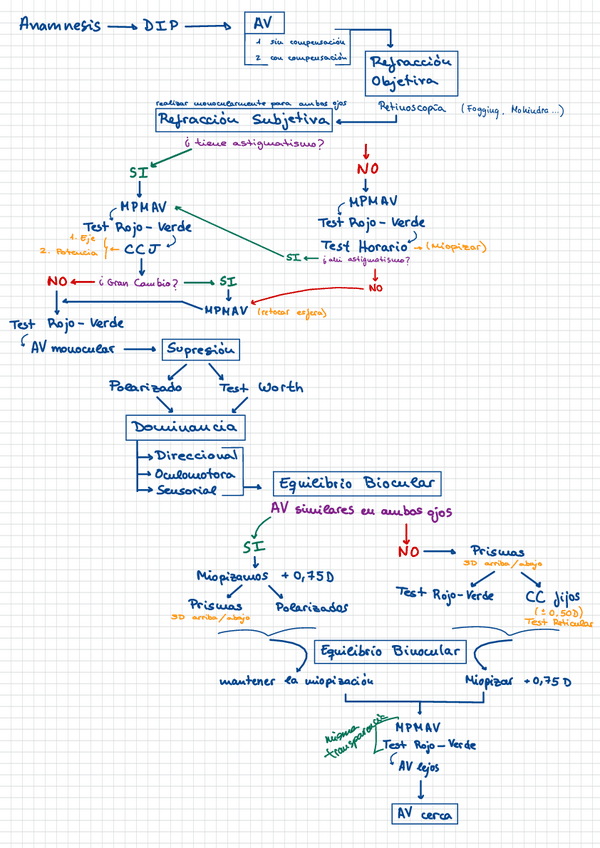 Anamnesis → DIP → AV
1 sin compensación
2 con compensación
Refracción
Objetiva
Retinoscopía (Fogging, Mohindra...)
realizar monocularmente para ambos ojos
Refracción Subjetiva
¿tiene astigmatismo?
SI
NO
MPMAV
MPMAV
Test Rojo-Verde
Test Rojo-Verde
1. Eje
2. Potencia
CCJ
Test Horario → (Miopizar)
SI
¿Hay astigmatismo?
NO
NO
¿Gran Cambio?
SI
MPMAV (retocar esfera)
Test Rojo-Verde
AV monocular
Supresión
Polarizado
Test Worth
Dominancia
Direccional
Oculomotora
Sensorial
Equilibrio Biocular
AV similares en ambos ojos
SI
NO
Prismas
3D arriba/abajo
Miopizamos +0,75D
Test Rojo-Verde
CC fijos
(±0,50D)
Test Reticular
Prismas
3D arriba/abajo
Polarizados
Equilibrio Binocular
mantener la miopización
Miopizar +0,75D
misma
transparencia
MPMAV
Test Rojo-Verde
AV lejos
AV cerca